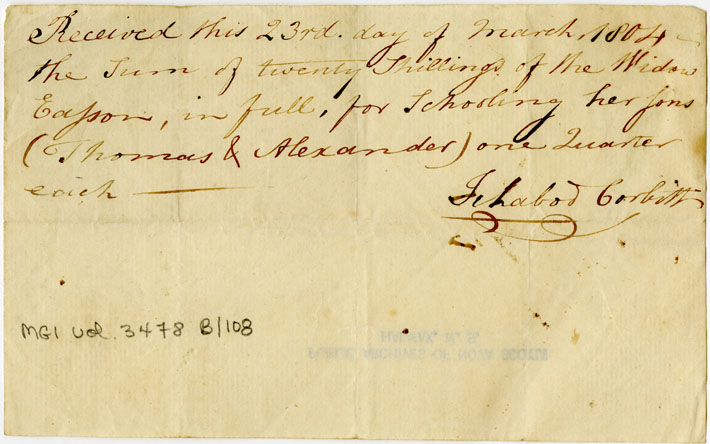 Received this 23rd. day of March, 1804
the Sum of twenty Shillings of the Widow
Eaſson, in full, for Schooling her ſons
(Thomas & Alexander) one Quarter
each
Ichabod Corbitt
MG1 Vol. 3478 B/108